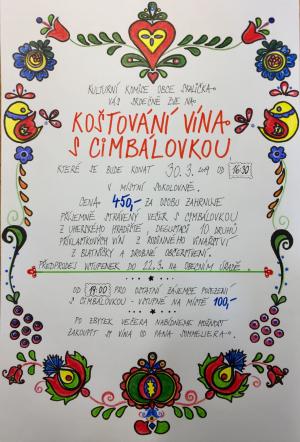 KULTURNÍ KOMISE OBCE SKALIČKA
VÁS SRDEČNĚ ZVE NA:
KOŠTOVÁNÍ VÍNA
S CIMBÁLOVKOU
KTERÉ SE BUDE KONAT 30.3. 2019 OD 16:30
V MÍSTNÍ SOKOLOVNĚ.
CENA 450,- ZA OSOBU ZAHRNUJE
PŘÍJEMNĚ STRÁVENÝ VEČER S CIMBÁLOVKOU
Z UHERSKÉHO HRADIŠTĚ, DEGUSTACI 10 DRUHŮ
PŘÍVLASTKOVÝCH VÍN Z RODINNÉHO VINAŘSTVÍ
Z BLATNIČKY A DROBNÉ OBČERSTVENÍ.
PŘEDPRODEJ VSTUPENEK DO 22.3. NA OBECNÍM ÚŘADĚ.
OD 19:00 PRO OSTATNÍ ZÁJEMCE POSEZENÍ
S CIMBÁLOVKOU - VSTUPNÉ NA MÍSTĚ 100,-
PO ZBYTEK VEČERA NABÍDNEME MOŽNOST
ZAKOUPIT SI VÍNA OD PANA SOMMELIERA